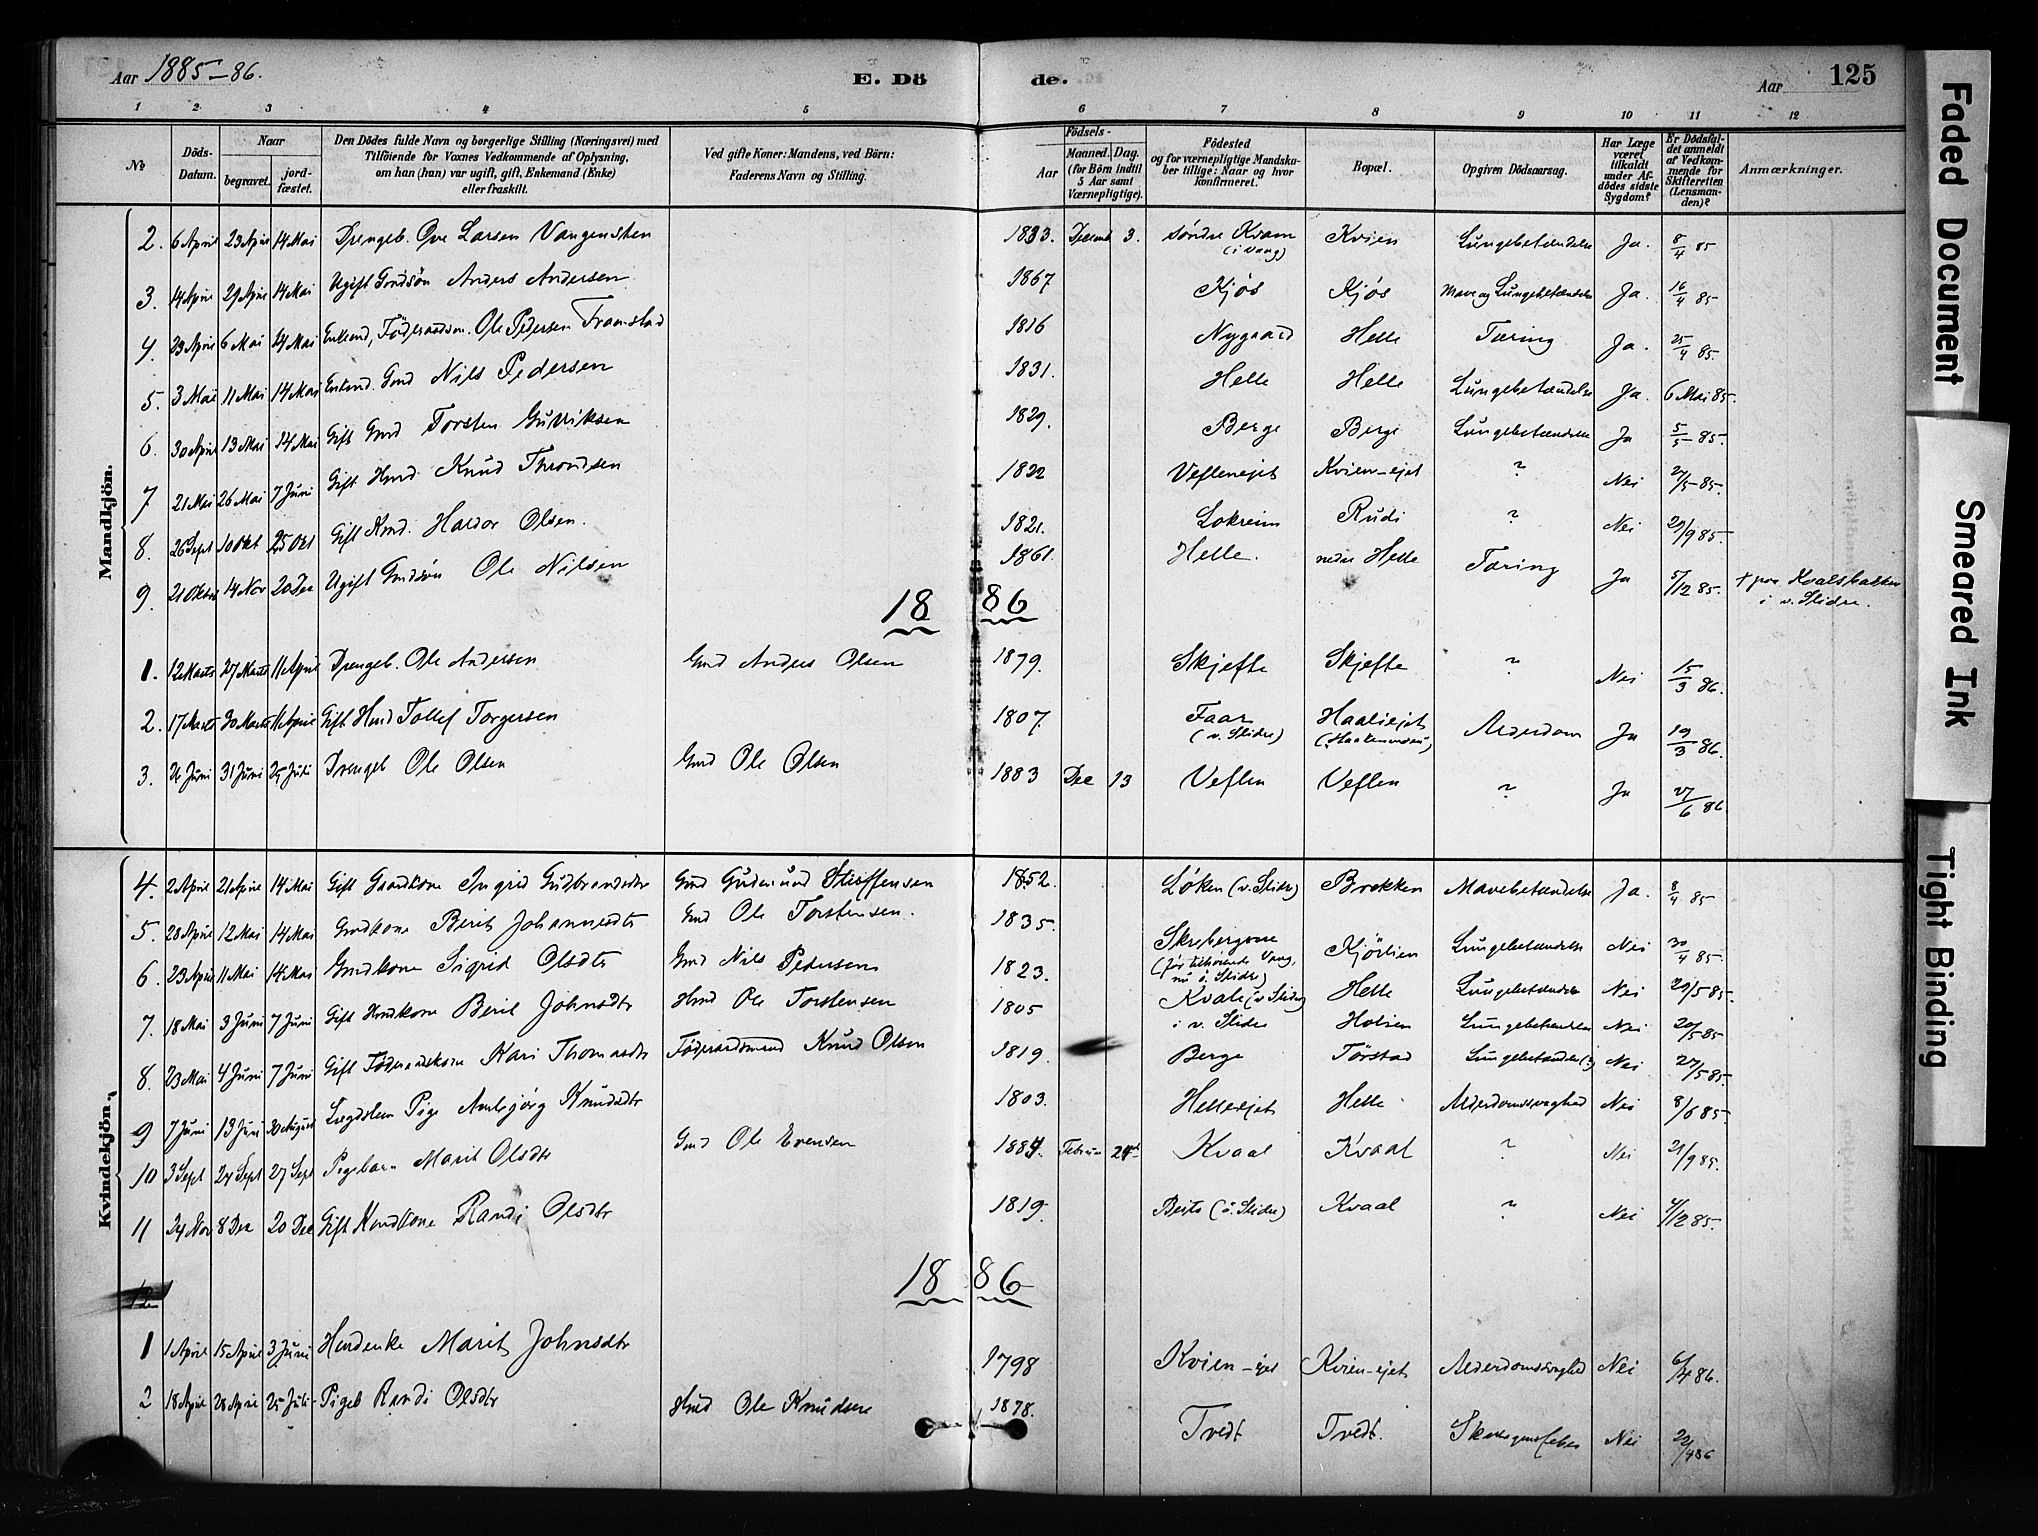 Aar 1885-86.
E. Dö de.
Aar 125
1 2 3 4 5 6 7 8 9 10 11 12
No
Döds-Datum.
Naar
begravet. jordfæstet.
Den Dödes fulde Navn og borgerlige Stilling (Næringsvei) med
Tilföiende for Voxnes Vedkommende af Oplysning,
om han (hun) var ugift, gift, Enkemand (Enke)
eller fraskilt.
Ved gifte Koner: Mandens, ved Börn:
Faderens Navn og Stilling.
Födsels-
Aar Maaned. Dag.
(for Börn indtil
5 Aar samt
Værnepligtige).
Födested
og for værnepligtige Mandskaber tillige: Naar og hvor
konfirmeret.
Bopæl.
Opgiven Dödsaarsag.
Har Læge
været
tilkaldt
under Afdödes sidste
Sygdom?
Er Dödsfaldet anmeldt
af Vedkommende for
Skifteretten
(Lensmanden)?
Anmærkninger.
Mandkjön.
2. 6 April 23 April 14 Mai Drengeb. Ove Larsen Vangensten 1883. Decemb 3. søndre Kvam (i Vang) Kvien Lungebetændelse Ja. 8/4 85
3. 14 April 29 April 14 Mai Ugift Gmdsön Anders Andersen 1867 Kjøs Kjøs Mave og Lungebetændelse Ja. 16/4 85
4. 23 April 6 Mai 14 Mai Enkemd, Föderaadsm. Ole Pedersen Framstad 1816 Nygaard Helle Tæring Ja. 25/4 85.
5. 3 Mai 11 Mai 14 Mai Enkmd. Gmd Nils Pedersen 1831. Helle Helle Lungebetændelse Ja. 6 Mai 85.
6. 30 April 13 Mai 14 Mai Gift Gmd Torsten Gulliksen 1829. Berge Berge Lungebetændelse Ja 5/5 85.
7 21 Mai 26 Mai 7 Juni Gift Hmd Knud Throndsen 1822 Veflenejet Kvien-ejet ? Nei 27/5 85.
8. 26 Sept 10 Okt 25 Okt Gift Kmd. Haldor Olsen. 1821. Lokreim Rudi ? Nei 29/9 85.
9. 21 Oktbr 14 Nov 20 Dec Ugift Gmdsön Ole Nilsen 1861. Helle. nedre Helle Tæring Ja 5/12 85. + paa Kvalsbakken
i v. Slidre.
1886
1. 12 Marts 27 Marts 11 April Drengeb. Ole Andersen Gmd Anders Olsen 1879. Skjefte Skjefte ? Nei 15/3 86.
2. 17 Marts 30 Marts 11 April Gift Hmd Tollef Torgersen 1807. Faar (v. Slidre) Haaliejet Alderdom Ja 19/3 86.
3. 26 Juni 31 Juni 25 Juli Drengeb Ole Olsen Gmd Ole Olsen 1883 Dec 13 Veflen Veflen ? Ja 27/6 86
Kvindekjön.
4. 2 April 21 April 14 Mai Gift Gaardkone Ingrid Gudbrandsdtr Gmd Gudmund Steffensen 1852. Løken (v. Slidre) Brekken Mavebetændelse Ja. 8/4 85
5. 28 April 12 Mai 14 Mai Gmdkone Berit Johannesdtr Gmd Ole Torstensen. 1835. Kjörlien Lungebetændelse Nei 30/4 85.
6. 23 April 11 Mai 14 Mai Gmdkone Sigrid Olsdtr Gmd Nils Pedersen 1823. Kvale (v Slidre) Helle Lungebetændelse Nei 29/5 85.
7. 18 Mai 3 Juni 7 Juni Gift Hmdkone Berit Johnsdtr Hmd Ole Torstensen 1805 i v. Slidre Holien Lungebetændelse Nei 20/5 85
8. 23 Mai 4 Juni 7 Juni Gift Föderaadskone Kari Thomasdtr Föderaadsmand Knud Olsen 1819. Berge Törstad Lungebetændelse (?) Nei 27/5 85.
9 7 Juni 13 Juni 30 August Lægdslem Pige Ambjörg Knudsdtr 1803. Helleejet Helle Alderdomssvaghed Nei 8/6 85.
10 3 Sept 24 Sept 27 Sept Pigebarn Marit Olsdtr Gmd Ole Evensen 1884. Februar 24 Kvaal Kvaal ? Nei 21/9 85.
11 24 Nov 8 Dec 20 Dec Gift Kmdkone Randi Olsdtr 1819. Beito (ö. Slidre) Kvaal ? Nei 4/12 85.
12
1886
1 1 April 15 April 3 Juni Hmdenke Marit Johnsdtr 1798 Kvien-ejet Kvien-ejet Alderdomssvaghed Nei 6/4 86.
2 18 April 28 April 25 Juli Pigeb Randi Olsdtr Hmd Ole Knudsen 1878. Tvedt Tvedt. Skarlagensfeber Nei 22/4 86
Faded Document
Smeared Ink
Tight Binding